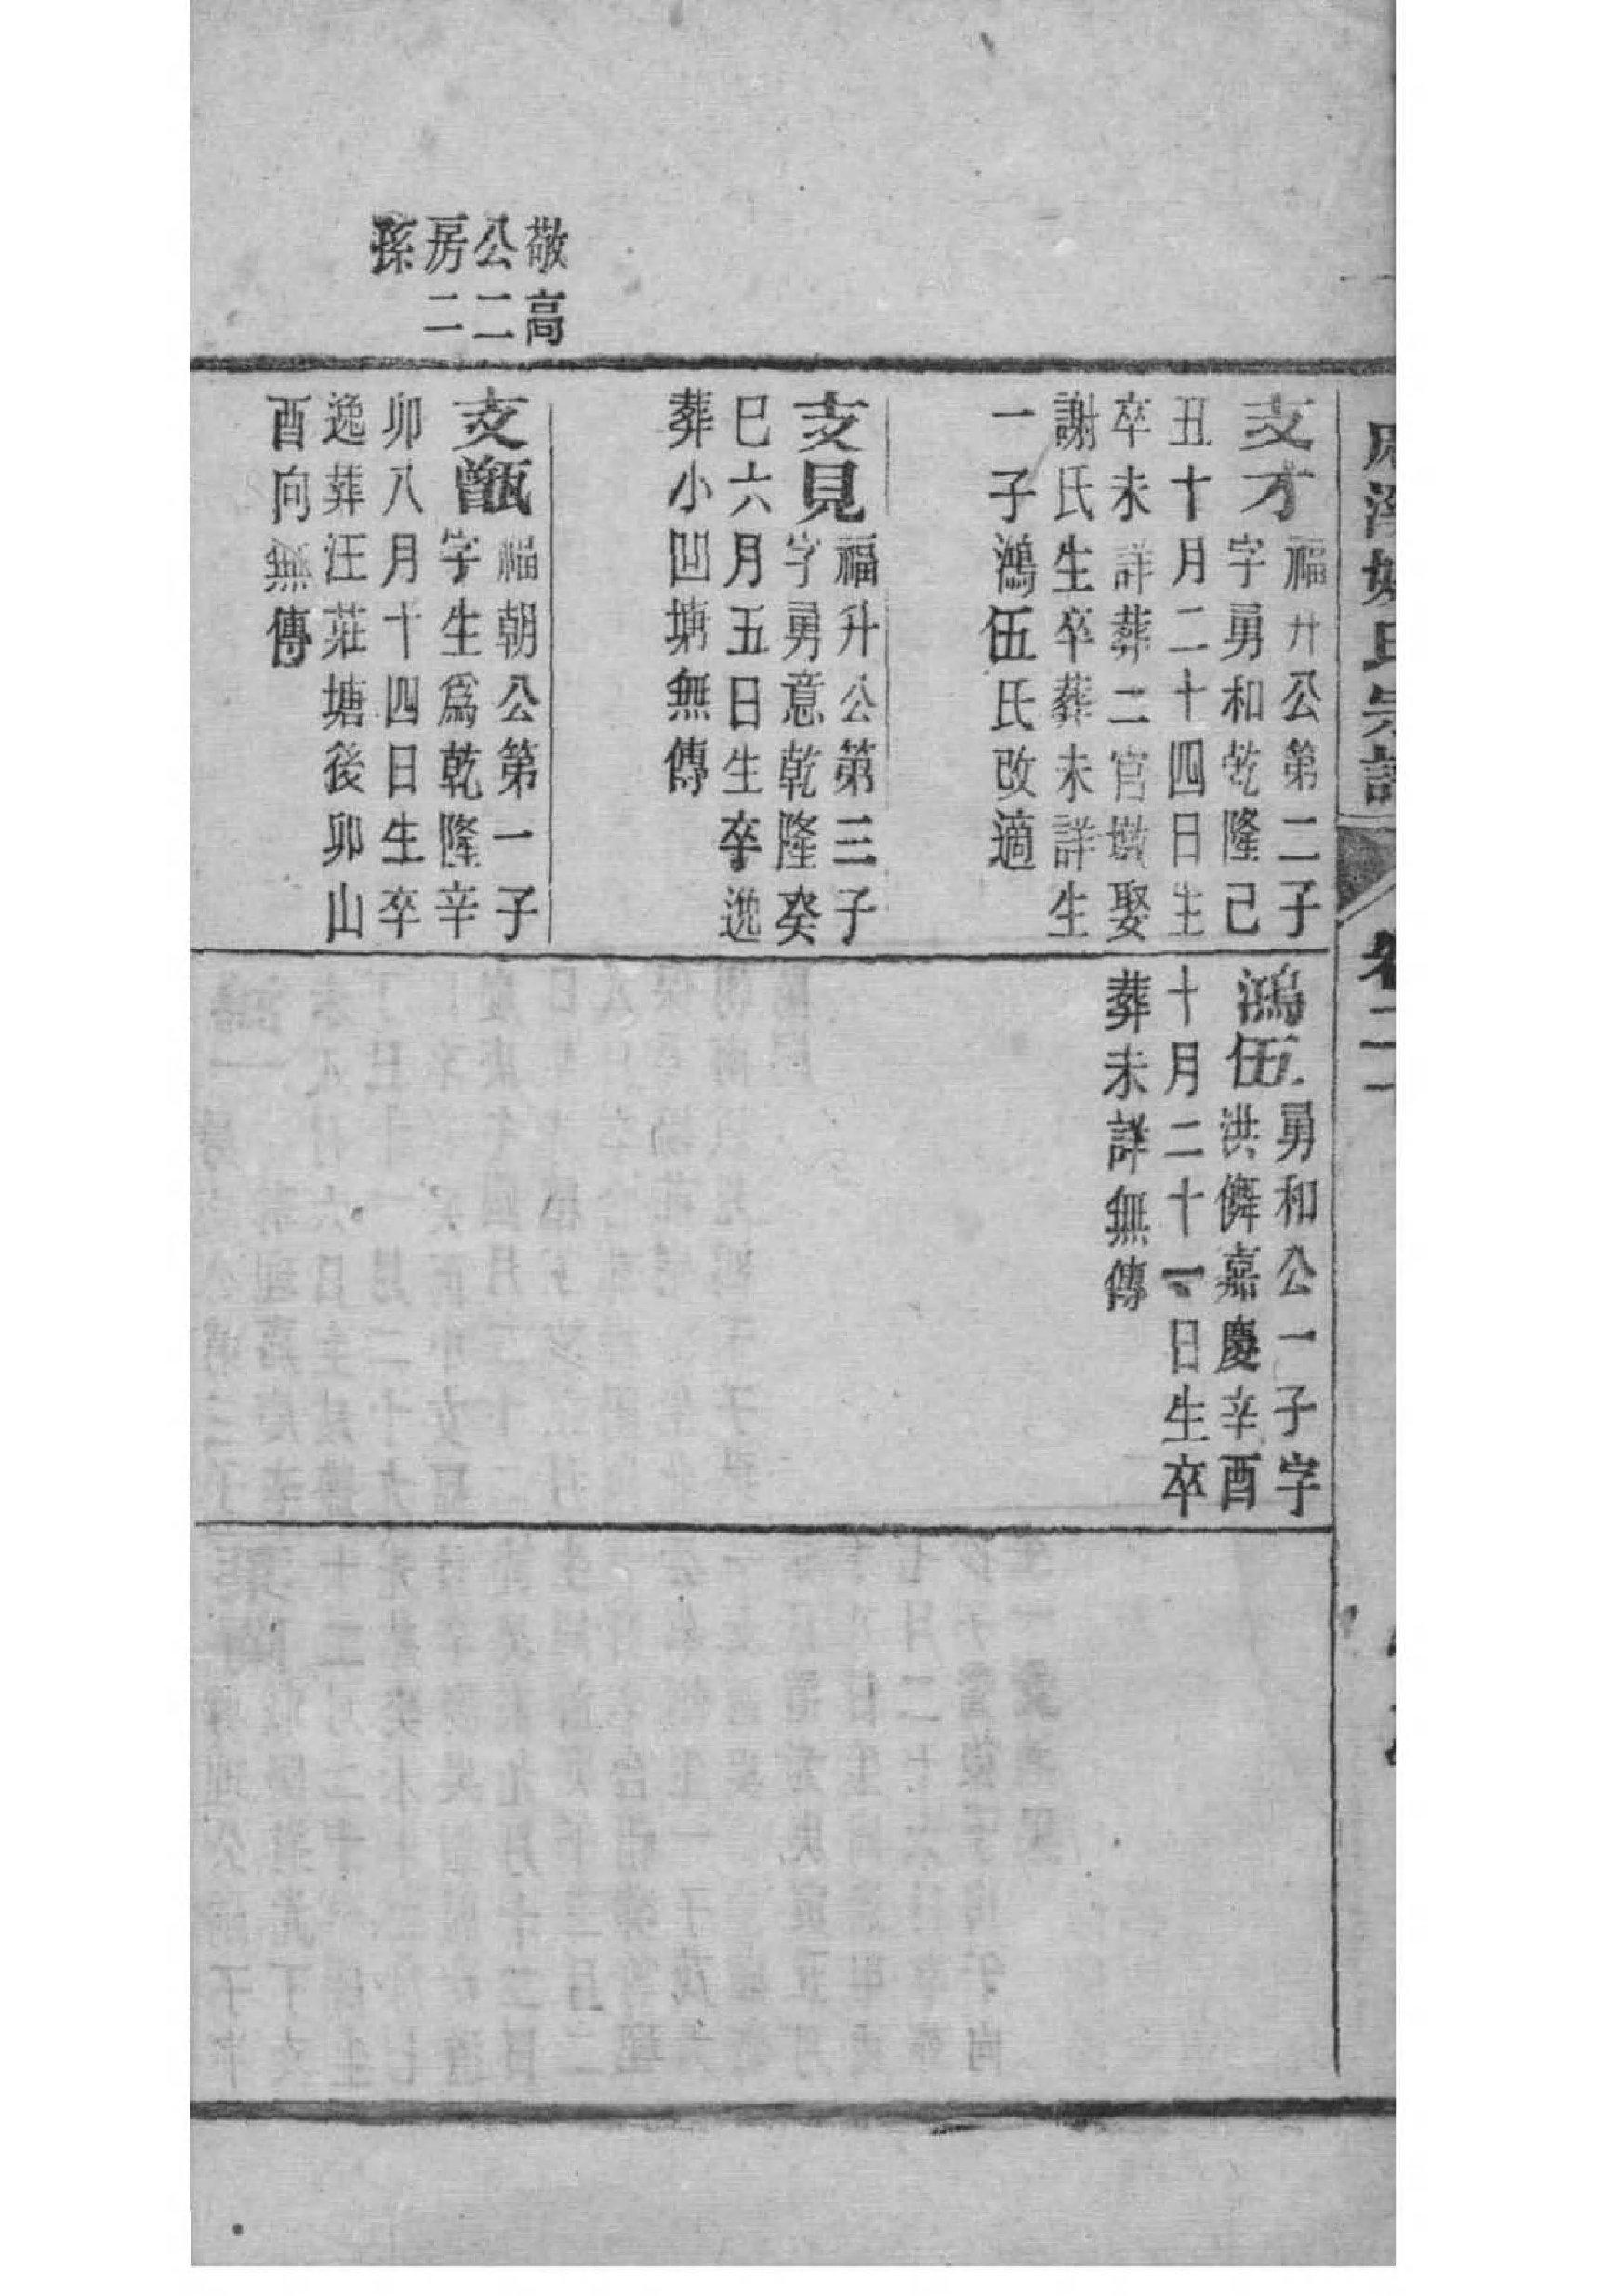 支才
福升公第二子
字勇和乾隆己
丑十月二十四日生
卒未詳葬二官墩娶
謝氏生卒葬未詳生
一子鴻伍氏改適
支見
福升公第三子
字勇意乾隆癸
巳六月五日生卒逸
葬小凹塘無傳
敬高
公二
房二
孫
支甑
福朝公第一子
字生為乾隆辛
卯八月十四日生卒
逸葬汪莊塘後卯山
酉向無傳
鴻伍
勇和公一子字
洪僻嘉慶辛酉
十月二十一日生卒
葬未詳無傳
氏宗譜
卷二